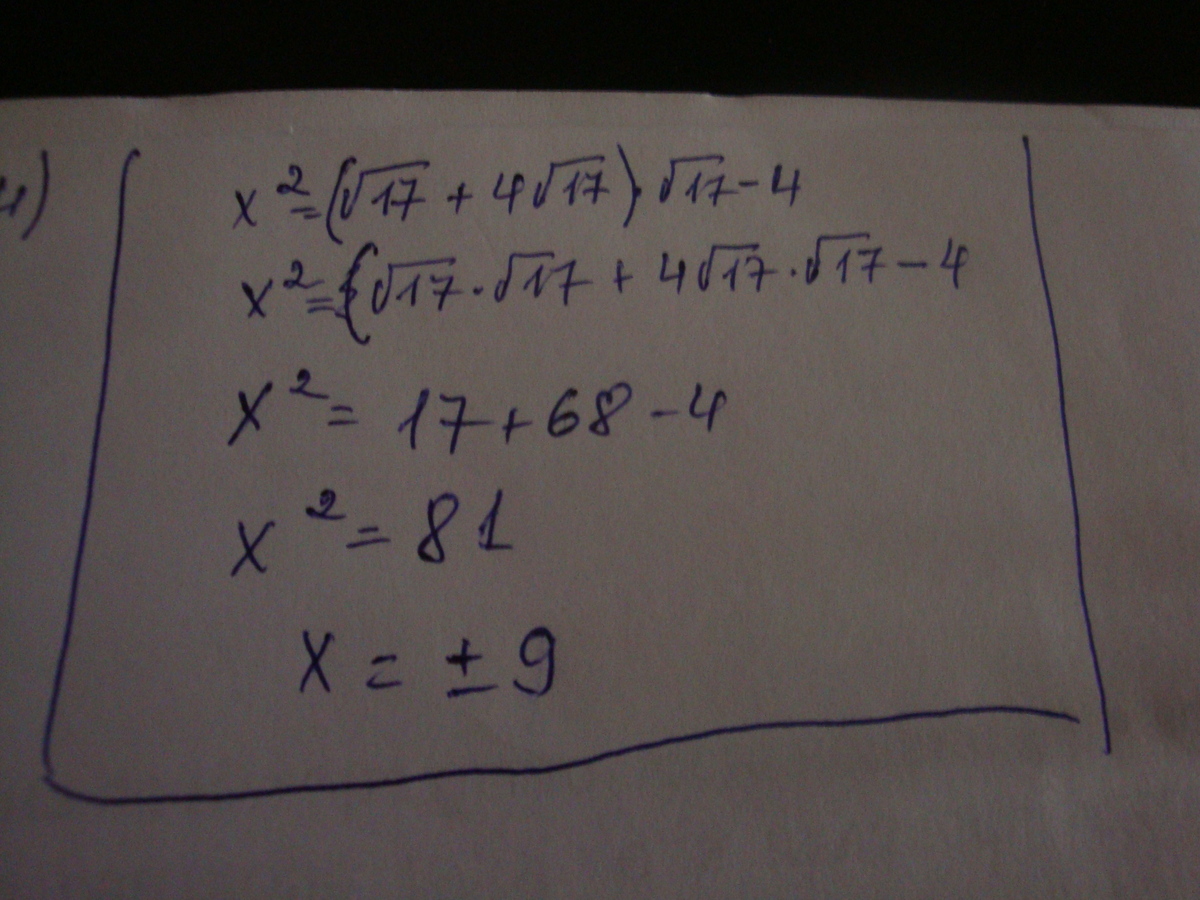 x² = (√17 + 4√17) · √17 - 4
x² = (√17 · √17 + 4√17 · √17 - 4
x² = 17 + 68 - 4
x² = 81
x = ± 9